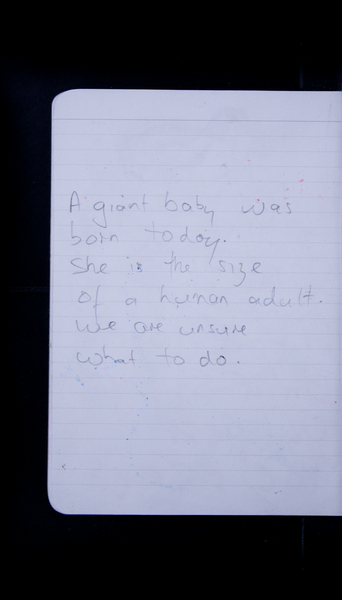 A giant baby was
born today.
She is the size
of a human adult.
We are unsure
what to do.